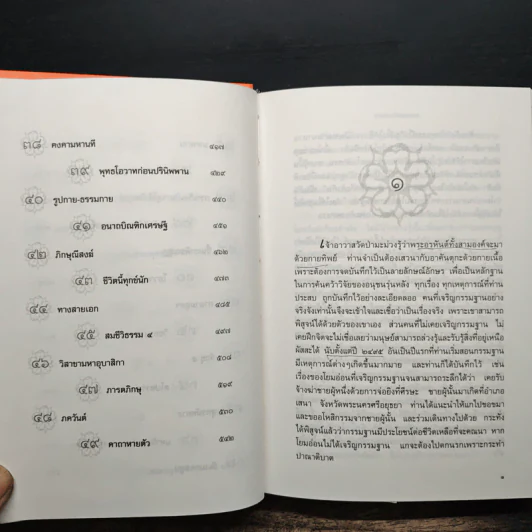 ๓๘ คงคามหานที ๔๑๗
๓๙ พุทธโอวาทก่อนปรินิพพาน ๔๒๙
๔๐ รูปกาย-ธรรมกาย ๔๔๐
๔๑ อนาถบิณฑิกเศรษฐี ๔๕๑
๔๒ ภิกษุณีสงฆ์ ๔๖๒
๔๓ ชีวิตนี้ทุกข์นัก ๔๗๓
๔๔ ทางสายเอก ๔๘๕
๔๕ สมชีวิธรรม ๔ ๔๙๗
๔๖ วิสาขามหาอุบาสิกา ๕๐๘
๔๗ ภารตภิกษุ ๕๑๙
๔๘ ภควันต์ ๕๓๐
๔๙ คาถาหายตัว ๕๔๒
๑
เจ้าอาวาสวัดป่ามะม่วงรู้ว่าพระอรหันต์ทั้งสามองค์จะมา
ด้วยกายทิพย์ ท่านจำเป็นต้องเสวนากับอาคันตุกะด้วยกายเนื้อ
เพราะต้องการจดบันทึกไว้เป็นลายลักษณ์อักษร เพื่อเป็นหลักฐาน
ในการค้นคว้าวิจัยของอนุชนรุ่นหลัง ทุกเรื่อง ทุกเหตุการณ์ที่ท่าน
ประสบ ถูกบันทึกไว้อย่างละเอียดลออ คนที่เจริญกรรมฐานอย่าง
จริงจังเท่านั้นจึงจะเข้าใจและเชื่อว่าเป็นเรื่องจริง เพราะเขาสามารถ
พิสูจน์ได้ด้วยตัวของเขาเอง ส่วนคนที่ไม่เคยเจริญกรรมฐาน ไม่
เคยฝึกจิตจะไม่เชื่อเลยว่ามนุษย์สามารถล่วงรู้และรับรู้สิ่งที่อยู่เหนือ
ผัสสะได้ นับตั้งแต่ปี ๒๔๙๙ อันเป็นปีแรกที่ท่านเริ่มสอนกรรมฐาน
มีเหตุการณ์ต่างๆเกิดขึ้นมากมาย และท่านก็ได้บันทึกไว้ เช่น
เรื่องของโยมอ่อนที่เจริญกรรมฐานจนสามารถระลึกได้ว่า เคยรับ
จ้างฆ่าชายผู้หนึ่งด้วยการจ่อยิงที่ศีรษะ ชายผู้นั้นมาเกิดที่อำเภอ
เสนา จังหวัดพระนครศรีอยุธยา ท่านได้แนะนำให้แกไปขอขมา
และขออโหสิกรรมจากชายผู้นั้น และร่วมเดินทางไปด้วย กระทั่ง
ได้พิสูจน์แล้วว่ากรรมฐานมีประโยชน์ต่อชีวิตเหลือที่จะคณนา หาก
โยมอ่อนไม่ได้เจริญกรรมฐาน แกจะต้องไปตกนรกเพราะกระทำ
ปาณาติบาต